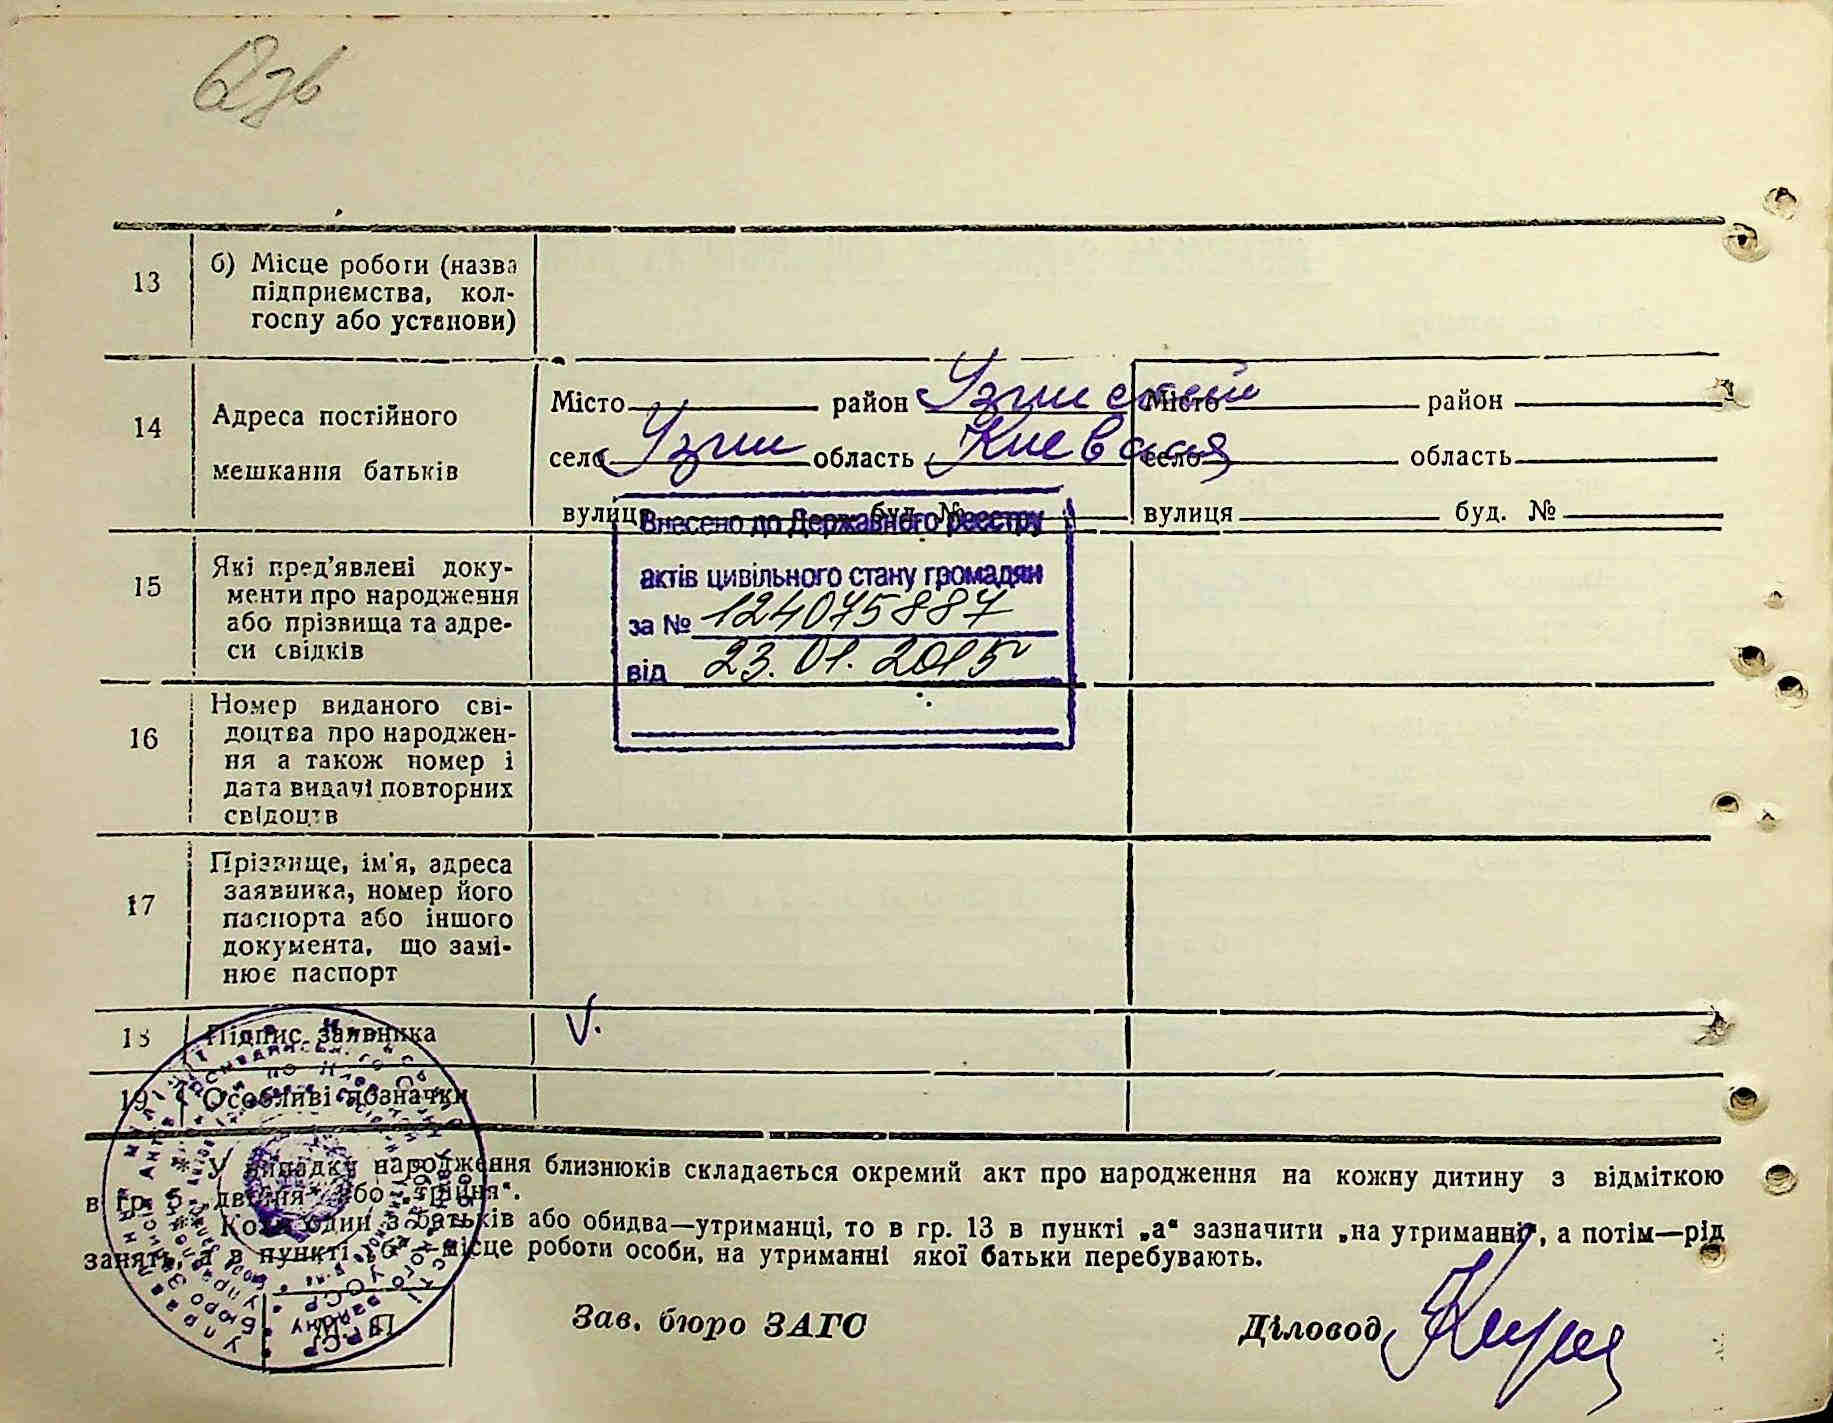 13
б) Місце роботи (назва
підприємства, кол-
госпу або установи)
14
Адреса постійного
мешкання батьків
Місто район Узинский
село Узин область Киевская
вулиця буд. №
Місто район
село область
вулиця буд. №
Внесено до Державного реєстру
актів цивільного стану громадян
за № 124075887
від 23.01.2015
15
Які пред'явлені доку-
менти про народження
або прізвища та адре-
си свідків
16
Номер виданого сві-
доцтва про народжен-
ня а також номер і
дата видачі повторних
свідоцтв
17
Прізвище, ім'я, адреса
заявника, номер його
паспорта або іншого
документа, що замі-
нює паспорт
18
Підпис заявника
V.
19
Особливі позначки
* У випадку народження близнюків складається окремий акт про народження на кожну дитину з відміткою
в гр. 5 „двійня" або „трійня".
Коли один з батьків або обидва—утриманці, то в гр. 13 в пункті „а" зазначити „на утриманні", а потім—рід
занять, а в пункті „б"—місце роботи особи, на утриманні якої батьки перебувають.
Зав. бюро ЗАГС
Діловод